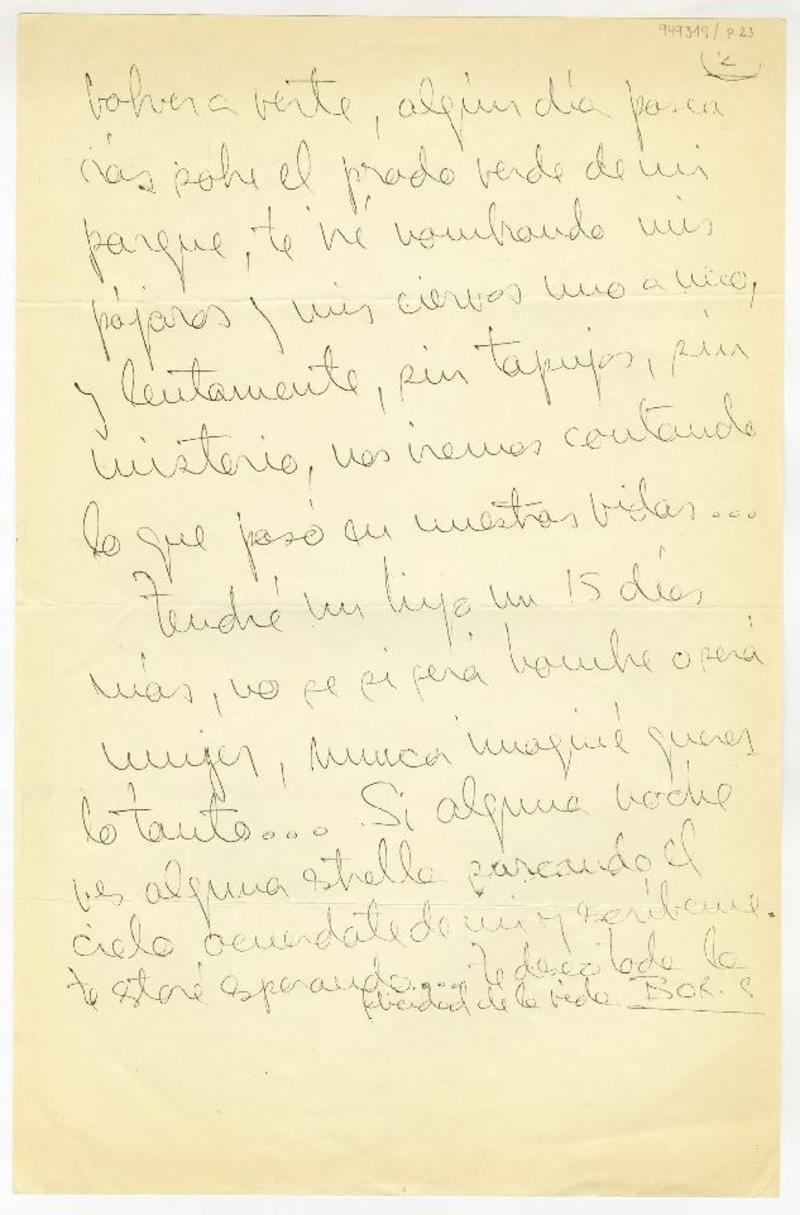 949319/p.23
2
volver a verte, algún día pasea
rás sobre el prado verde de mi
parque, te iré nombrando mis
pájaros y mis ciervos uno a uno,
y lentamente, sin tapujos, sin
misterio, nos iremos contando
lo que pasó en nuestras vidas...
Tendré un hijo en 15 días
más, no se si será hombre o será
mujer, nunca imaginé querer
lo tanto... Si alguna noche
ves alguna estrella paseando el
cielo acuerdate de mi y escríbeme.
te estaré esperando.... te deseo toda la
felicidad de la vida BOR.